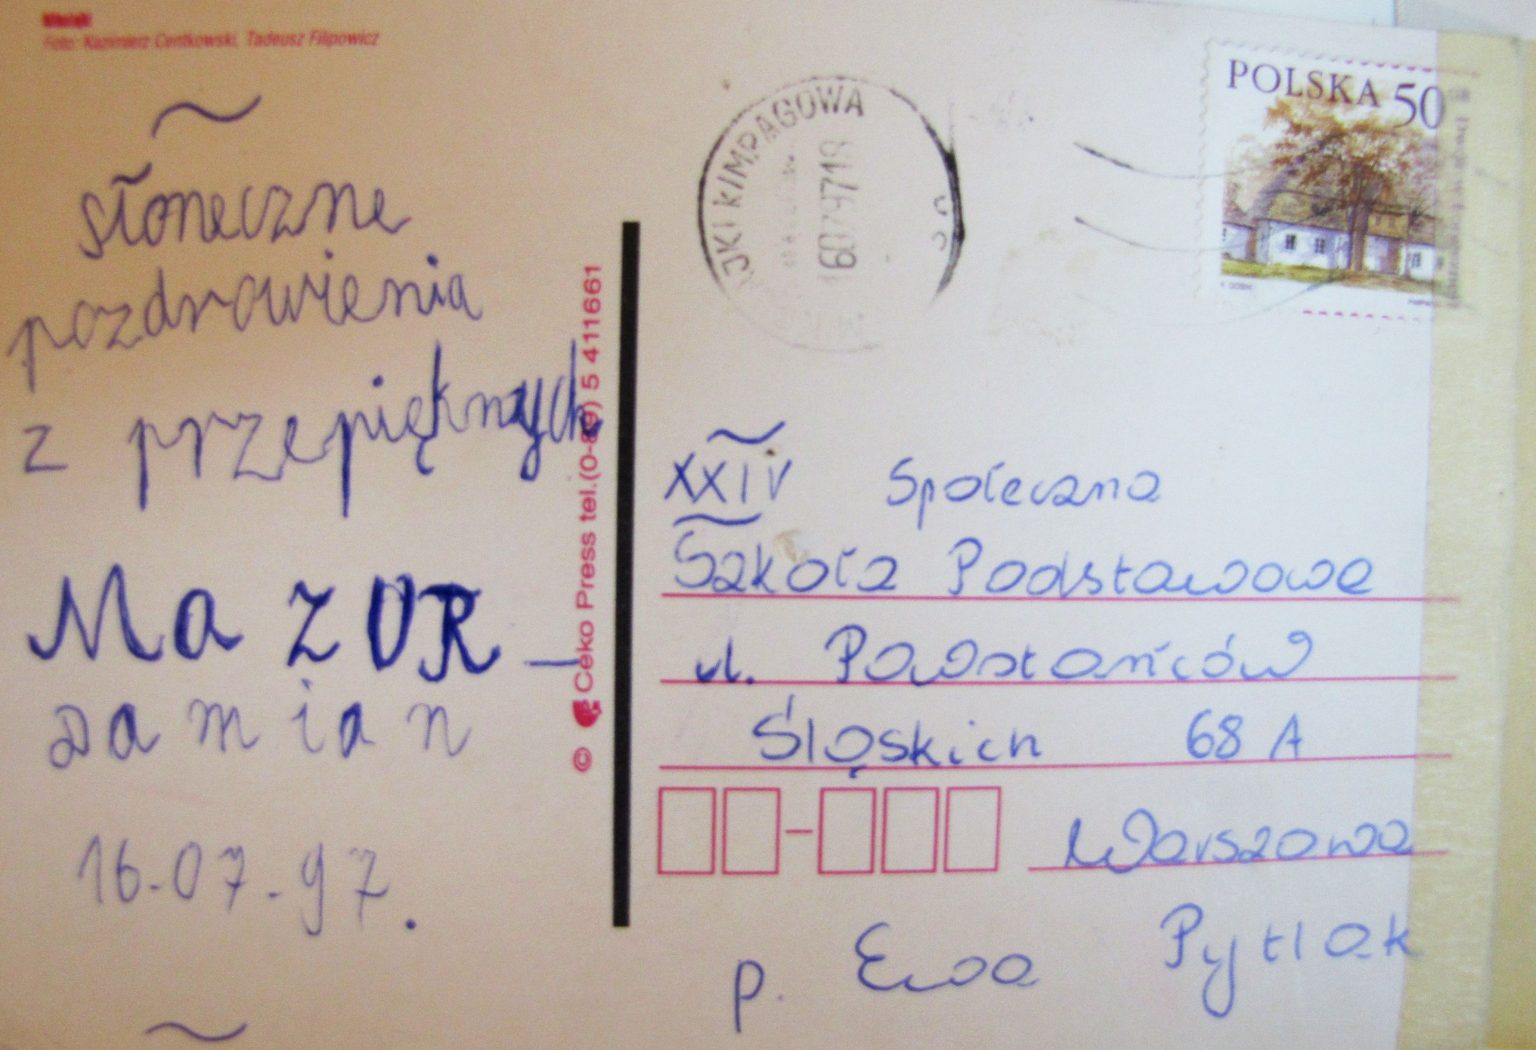 Mikołajki
Foto: Kazimierz Centkowski, Tadeusz Filipowicz
słoneczne
pozdrowienia
z przepięknych
MaZUR –
Damian
16.07.97.
© Ceko Press tel.(0-89) 5 411661
KIMPAGOWA
POLSKA 50
XXIV Społeczna
Szkoła Podstawowa
ul. Powstańców
Śląskich 68 A
Warszawa
p. Ewa Pytlak